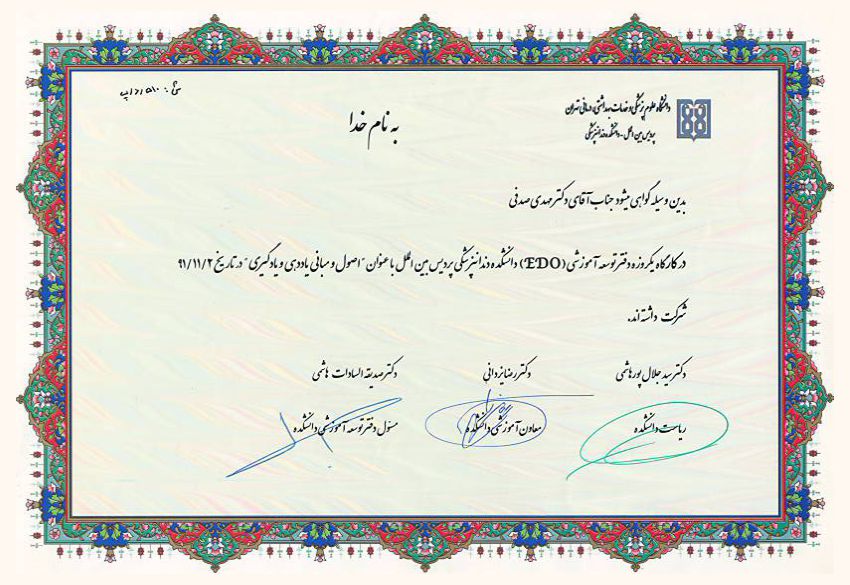 دانشگاه علوم پزشکی و خدمات بهداشتی درمانی تهران
پردیس بین الملل - دانشکده دندانپزشکی
به نام خدا
بدین وسیله گواهی میشود جناب آقای دکتر مهدی صدفی
در کارگاه یکروزه دفتر توسعه آموزشی (EDO) دانشکده دندانپزشکی پردیس بین الملل با عنوان "اصول و مبانی یاددهی و یادگیری" در تاریخ ۹۱/۱۱/۲
شرکت داشته اند.
دکتر سید جلال پورهاشمی دکتر رضا یزدانی دکتر صدیقه السادات هاشمی
ریاست دانشکده معاون آموزشی دانشکده مسئول دفتر توسعه آموزشی دانشکده